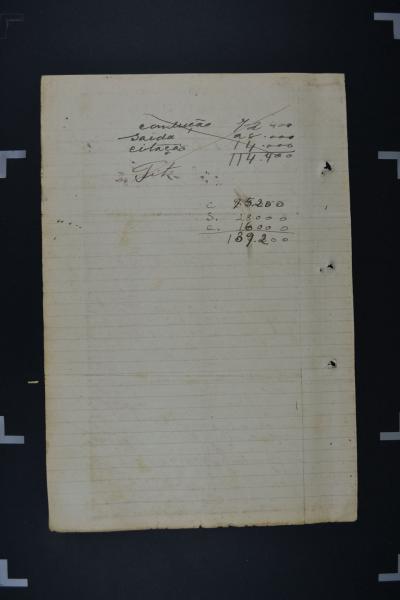 condução 72.400
saida 28.000
citação 14.000
114.400
C 95.200
S. 28.000
C. 16000
139.200